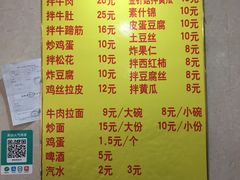 拌牛肉 20元
拌牛肚 25元
拌牛蹄筋 16元
炸鸡蛋 10元
拌松花 10元
炸豆腐 10元
鸡丝拉皮 12元
素什锦 10元
皮蛋豆腐 10元
土豆丝 10元
炸果仁 8元
拌西红柿 8元
拌豆腐丝 8元
拌黄瓜 8元
牛肉拉面 9元/大碗 8元/小碗
炒面 15元/大份 10元/小份
鸡蛋 1.5元/个
啤酒 5元
汽水 2元 3元